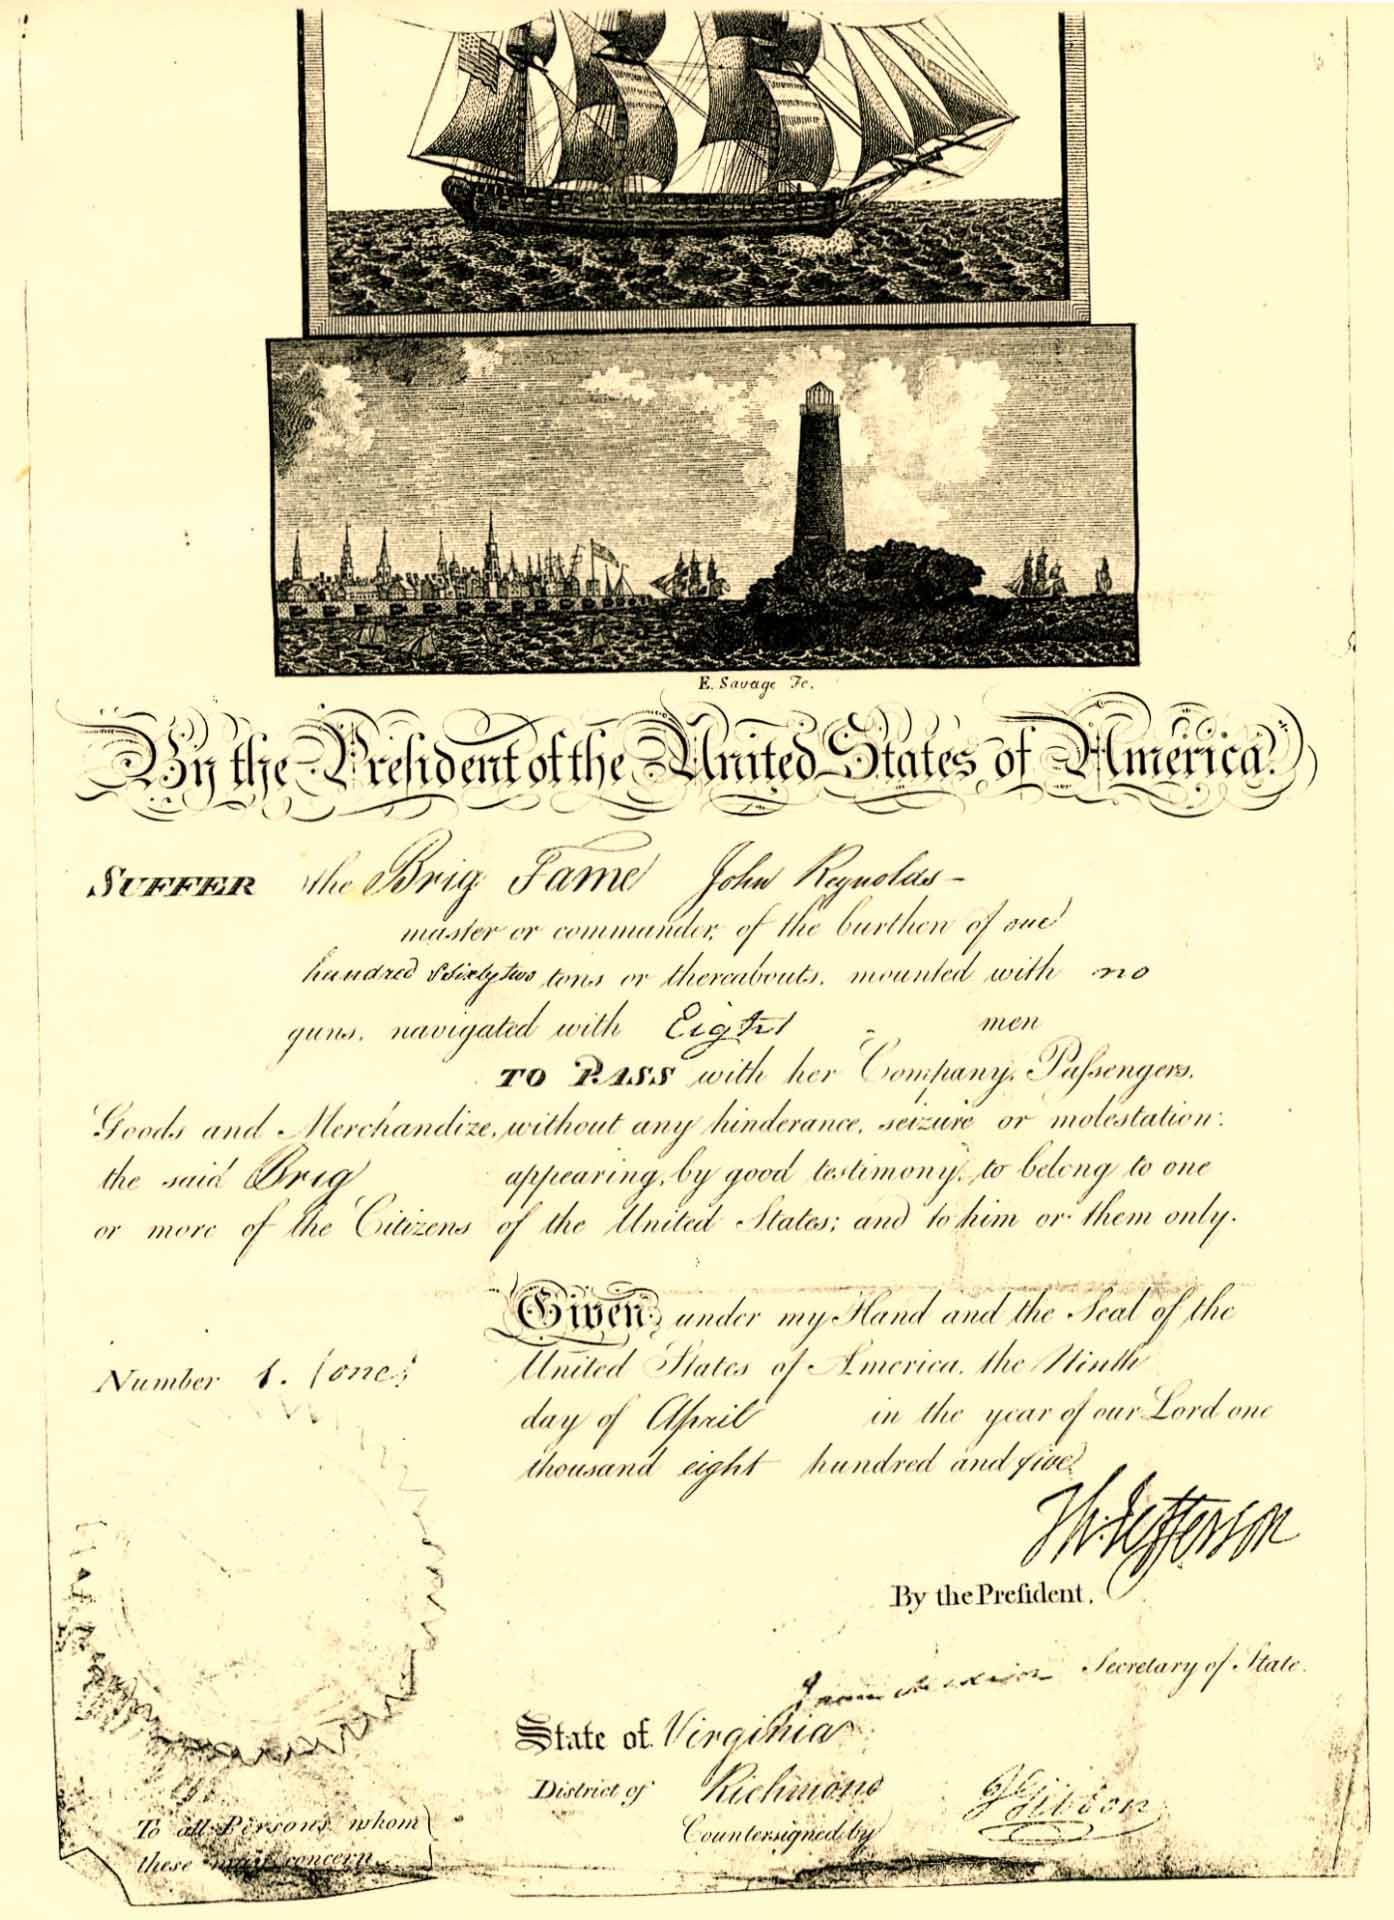 E. Savage Fc.
By the President of the United States of America.
SUFFER the Brig Fame John Reynolds –
master or commander, of the burthen of one
hundred & Sixty two tons or thereabouts, mounted with no
guns, navigated with Eight men
TO PASS with her Company, Paſsengers,
Goods and Merchandize, without any hinderance, seizure or molestation:
the said Brig appearing, by good testimony, to belong to one
or more of the Citizens of the United States; and to him or them only.
Given under my Hand and the Seal of the
United States of America, the Ninth
Number 1. (one)
day of April in the year of our Lord one
thousand eight hundred and five
Th: Jefferson
By the Preſident,
James Madison Secretary of State.
State of Virginia
District of Richmond
J Gibbon
Countersigned by
To all Persons whom
these may concern.